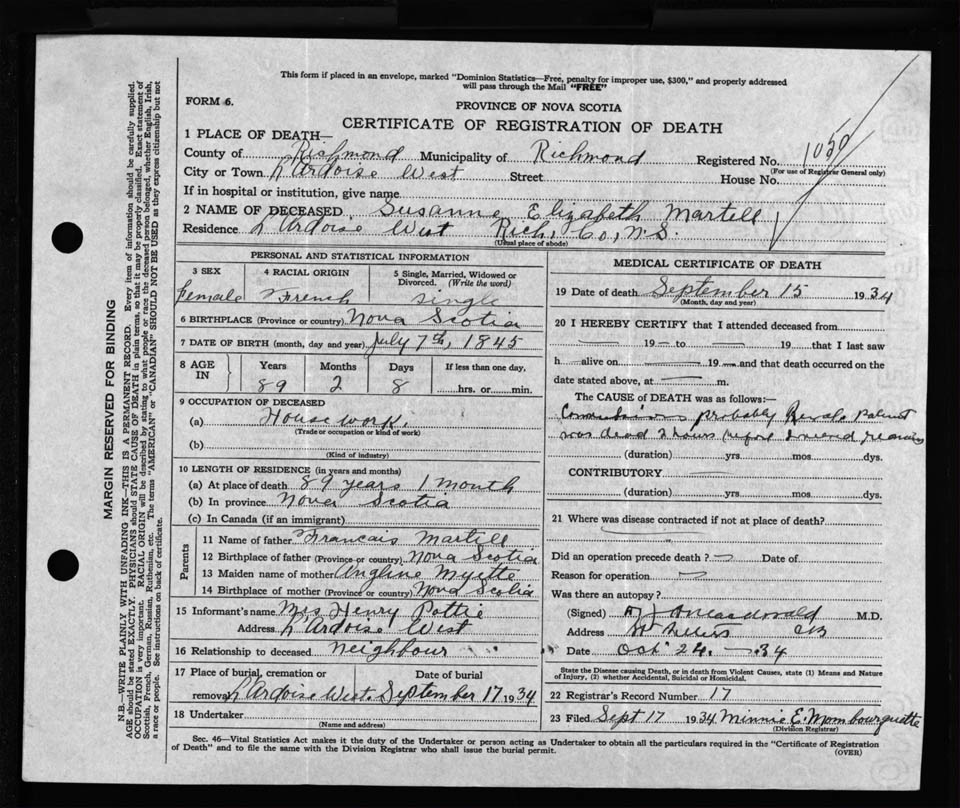 This form if placed in an envelope, marked "Dominion Statistics—Free, penalty for improper use, $300," and properly addressed
will pass through the Mail "FREE"
FORM 6.
PROVINCE OF NOVA SCOTIA
CERTIFICATE OF REGISTRATION OF DEATH
1 PLACE OF DEATH—
County of Richmond Municipality of Richmond Registered No.
(For use of Registrar General only)
City or Town L'Ardoise West Street House No.
If in hospital or institution, give name
2 NAME OF DECEASED Susanne Elizabeth Martell
Residence L'Ardoise West Rich. Co, N.S.
(Usual place of abode)
PERSONAL AND STATISTICAL INFORMATION
3 SEX 4 RACIAL ORIGIN 5 Single, Married, Widowed or
Divorced. (Write the word)
female French single
6 BIRTHPLACE (Province or country) Nova Scotia
7 DATE OF BIRTH (month, day and year) July 7th, 1845
8 AGE IN Years Months Days If less than one day,
89 2 8 hrs. or min.
9 OCCUPATION OF DECEASED
(a) House work.
(Trade or occupation or kind of work)
(b)
(Kind of industry)
10 LENGTH OF RESIDENCE (in years and months)
(a) At place of death 89 years 1 month
(b) In province Nova Scotia
(c) In Canada (if an immigrant)
Parents
11 Name of father Francais Martell
12 Birthplace of father (Province or country) Nova Scotia
13 Maiden name of mother Angline Myette
14 Birthplace of mother (Province or country) Nova Scotia
15 Informant's name Mrs Henry Pottie
Address L'Ardoise West
16 Relationship to deceased neighbour
17 Place of burial, cremation or Date of burial
removal L'Ardoise West. September 17 1934
18 Undertaker
(Name and address)
MEDICAL CERTIFICATE OF DEATH
19 Date of death September 15 1934
(Month, day and year)
20 I HEREBY CERTIFY that I attended deceased from
19 — to 19 that I last saw
h alive on 19 — and that death occurred on the
date stated above, at — m.
The CAUSE OF DEATH was as follows:
probably patient
was dead 2 hours before
(duration) yrs. mos. dys.
CONTRIBUTORY
(duration) yrs. mos. dys.
21 Where was disease contracted if not at place of death?
Did an operation precede death? Date of
Reason for operation
Was there an autopsy?
(Signed) M.D.
Address St Peters CB
Date Oct 24 — 34
State the Disease causing Death, or in death from Violent Causes, state (1) Means and Nature
of Injury, (2) whether Accidental, Suicidal or Homicidal.
22 Registrar's Record Number 17
23 Filed Sept 17 1934 Minnie E. Mombourquette
(Division Registrar)
Sec. 46—Vital Statistics Act makes it the duty of the Undertaker or person acting as Undertaker to obtain all the particulars required in the "Certificate of Registration
of Death" and to file the same with the Division Registrar who shall issue the burial permit. (OVER)
MARGIN RESERVED FOR BINDING
N.B.—WRITE PLAINLY WITH UNFADING INK—THIS IS A PERMANENT RECORD. Every item of information should be carefully supplied.
AGE should be stated EXACTLY. PHYSICIANS should STATE CAUSE OF DEATH in plain terms, so that it may be properly classified. Exact statement of
OCCUPATION is very important. RACIAL ORIGIN will be described by stating to what people or race the deceased person belonged, whether English, Irish,
Scottish, French, German, Russian, Ruthenian, etc. The terms "AMERICAN" or "CANADIAN" SHOULD NOT BE USED as they express citizenship but not
a race or people. See instructions on back of certificate.